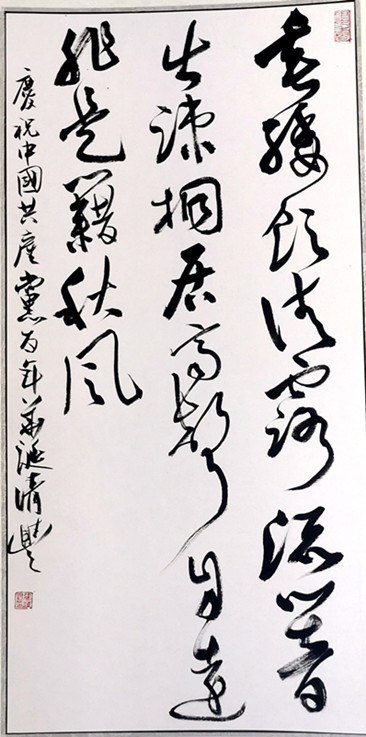 垂緌飲清露流響
出疏桐居高聲自遠
非是藉秋風
慶祝中國共產黨百年華誕清